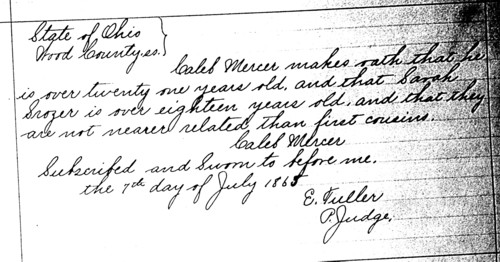 State of Ohio }
Wood County ss. }
Caleb Mercer makes oath that he
is over twenty one years old, and that Sarah
Srozer is over eighteen years old, and that they
are not nearer related than first cousins.
Caleb Mercer
Subscribed and Sworn to before me.
the 7th day of July 1865
E. Fuller
P. Judge.